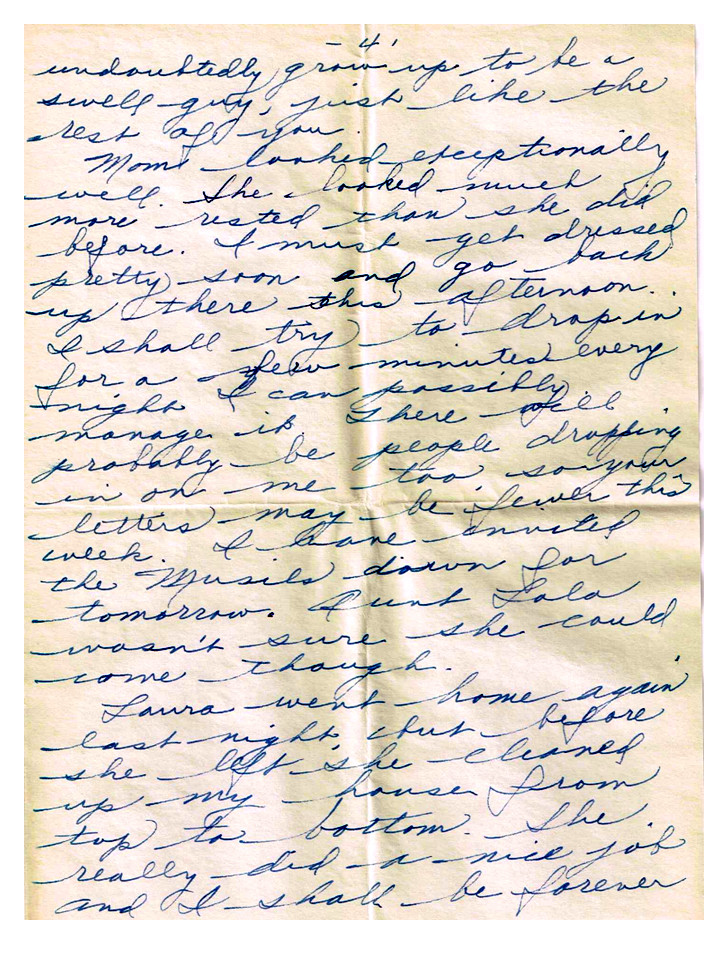 - 4 -
undoubtedly grow up to be a
swell guy, just like the
rest of you.
Mom looked exceptionally
well. She looked much
more rested than she did
before. I must get dressed
pretty soon and go back
up there this afternoon.
I shall try to drop in
for a few minutes every
night I can possibly
manage it. There will
probably be people dropping
in on me too so your
letters may be fewer this
week. I have invited
the Musils down for
tomorrow. Aunt Lola
wasn't sure she could
come though.
Laura went home again
last night, but before
she left she cleaned
up my house from
top to bottom. She
really did a nice job
and I shall be forever